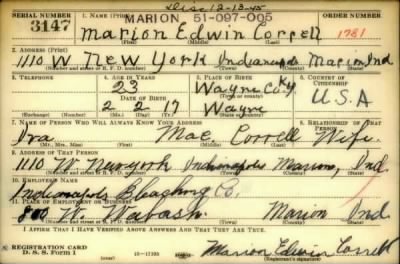 Disc 12-13-45
SERIAL NUMBER 1. NAME (Print) ORDER NUMBER
MARION 51-097-005
3147 Marion Edwin Correll 1781
(First) (Middle) (Last)
2. ADDRESS (Print)
1110 W New York Indianapolis Marion Ind
(Number and street or R. F. D. number) (Town) (County) (State)
3. TELEPHONE 4. AGE IN YEARS 5. PLACE OF BIRTH 6. COUNTRY OF CITIZENSHIP
23 Wayne Co. Ky.
DATE OF BIRTH (Town or county)
2 2 17 Wayne U.S.A
(Exchange) (Number) (Mo.) (Day) (Yr.) (State or country)
7. NAME OF PERSON WHO WILL ALWAYS KNOW YOUR ADDRESS 8. RELATIONSHIP OF THAT PERSON
Iva Mae Correll Wife
(Mr., Mrs., Miss) (First) (Middle) (Last)
9. ADDRESS OF THAT PERSON
1110 W. Newyork Indianapolis Marion, Ind.
(Number and street or R. F. D. number) (Town) (County) (State)
10. EMPLOYER'S NAME
Indianapolis Bleaching Co.
11. PLACE OF EMPLOYMENT OR BUSINESS
800 W. Wabash Marion Ind
(Number and street or R. F. D. number) (Town) (County) (State)
I AFFIRM THAT I HAVE VERIFIED ABOVE ANSWERS AND THAT THEY ARE TRUE.
REGISTRATION CARD
D. S. S. Form 1 Marion Edwin Correll
(Registrant's signature)